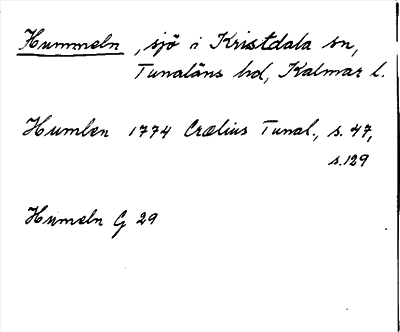 Hummeln, sjö i Kristdala sn,
Tunaläns hd, Kalmar l.
Humlen 1774 Crælius Tunal., s. 47,
s. 129
Humeln G 29